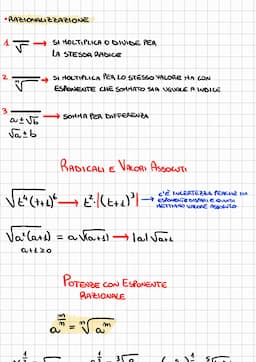 • RAZIONALIZZAZIONE
1 √ → SI MOLTIPLICA O DIVIDE PER
LA STESSA RADICE
2 → SI MOLTIPLICA PER LO STESSO VALORE MA CON
ESPONENTE CHE SOMMATO SIA UGUALE A INDICE
3 a±√b → SOMMA PER DIFFERENZA
√a±b
RADICALI E VALORI ASSOLUTI
√t⁴(t+1)⁶ → t²·|(t+1)³| → C'È INCERTEZZA PERCHÉ HA
ESPONENTE DISPARI E QUINDI
METTIAMO VALORE ASSOLUTO
√a²(a+1) = a√(a+1) → |a|√a+1
a+1≥0
POTENZE CON ESPONENTE
RAZIONALE